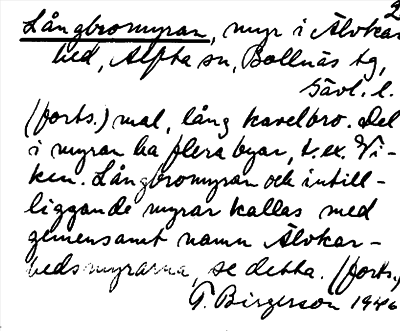 2
Långbromyran, myr i Älvkar-
hed, Alfta sn, Bollnäs tg,
Gävl. l.
(forts.) mal, lång kavelbro. Del
i myran ha flera byar, t.ex. Vi-
ken. Långbromyran och intill-
liggande myrar kallas med
gemensamt namn Älvkar-
hedsmyrarna, se detta. (forts.)
G. Birgerson 1946